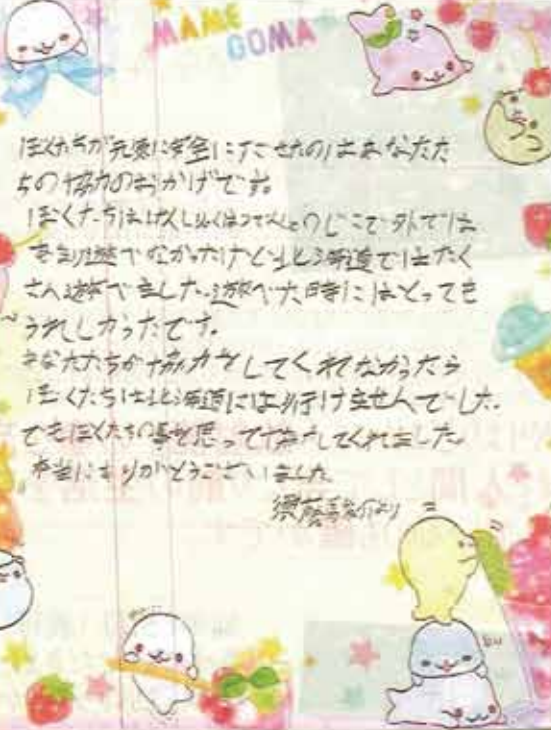 MAME
GOMA
ぼくたちが元気に安全にすごせたのはあなたた
ちの協力のおかげです。
ぼくたちはげんしりょくはつでんしょのじこで外では
あまり遊べなかったけど北海道ではたく
さん遊べました。遊べた時にはとっても
うれしかったです。
あなたたちが協力をしてくれなかったら
ぼくたちは北海道には行けませんでした。
でもぼくたちの事を思って協力してくれました。
本当にありがとうございました。
須藤 より